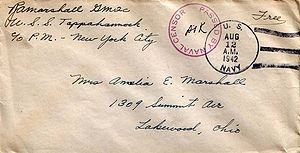 Ramarshall GM2c
U.S.S. Tappahannock
c/o P.M. - New York City
PASSED BY NAVAL CENSOR
U. S.
AUG
12
A.M.
1942
NAVY
Free
Mrs Amelia E. Marshall
1309 Summit Ave
Lakewood, Ohio